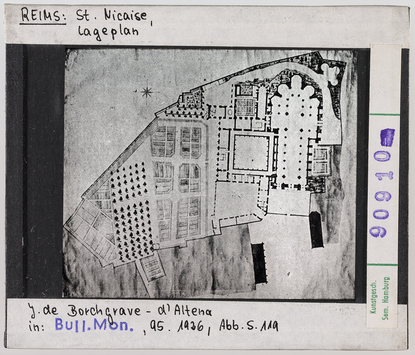 REIMS: St. Nicaise,
Lageplan
90910a
Kunstgesch.
Sem. Hamburg
J. de Borchgrave - d'Altena
in: Bull. Mon., 95. 1936, Abb. S. 119